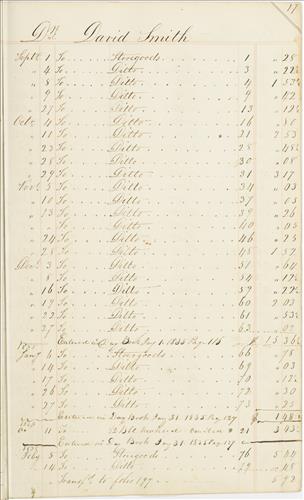 17
Dr. David Smith
Sept. 1 To Storegoods 1 " 25
" 4 To Ditto 3 " 22½
" 4 To Ditto 4 1 53½
" 9 To Ditto 9 " 12
" 27 To Ditto 13 " 12½
Oct. 4 To Ditto 16 " 50
" 11 To Ditto 21 2 53
" 23 To Ditto 28 " 48
" 28 To Ditto 30 " 08
" 29 To Ditto 31 3 17
Nov. 3 To Ditto 34 " 03
" 10 To Ditto 37 " 03
" 13 To Ditto 39 " 26
" To Ditto 40 " 03
" 24 To Ditto 46 " 25
" 28 To Ditto 48 1 57
Dec. 3 To Ditto 51 " 64
" 8 To Ditto 54 " 12½
" 16 To Ditto 57 " 22½
" 19 To Ditto 60 2 03
" 22 To Ditto 61 " 53½
" 27 To Ditto 63 " 02
Entered in Day Book 1835 Page 115 $ 15 36
Jany 6 To Storegoods 66 " 78
" 14 To Ditto 69 " 03
" 17 To Ditto 70 " 12
" 26 To Ditto 72 " 30
" 27 To Ditto 73 " 25
Entered in Day Book Jany 31 1835 Page 127 $ 1 48
11 To 21 3 43
Entered in Day Book Jany 31 1835 Page 17
Feby 5 To Storegoods 76 5 44
" 14 To Ditto " 48
Transf. to folio 197 5 73